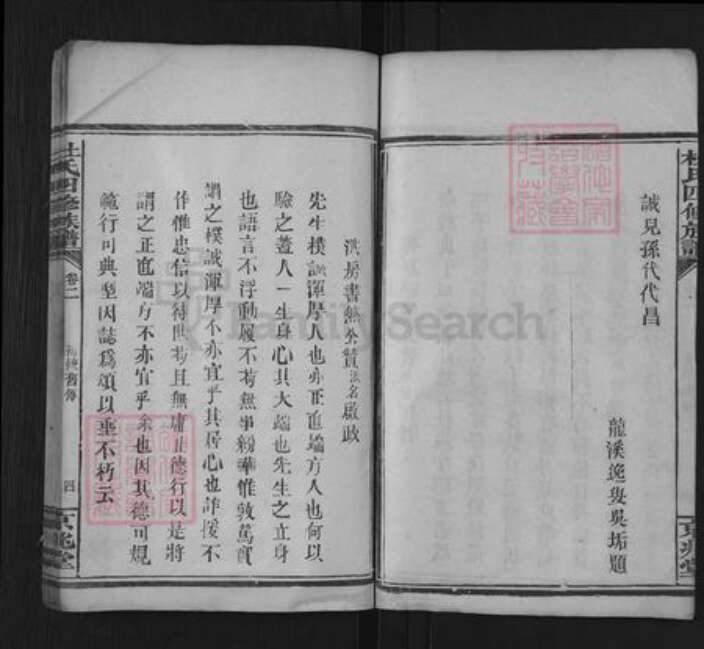 杜氏四修族譜
誠見孫代代昌
龍溪逸叟吳垢題
京兆堂
洪房書無公贊 派名啟政
先生樸誠渾厚人也亦正直端方人也何以
驗之蓋人一生身心其大端也先生之立身
也語言不浮動履不苟無爭紛華惟敦篤實
謂之樸誠渾厚不亦宜乎其居心也詐援不
作惟忠信以待世接且無虛止德行以是將
謂之正直端方不亦宜乎余也因其德可規
範行可典型因誌為頌以垂不朽云
杜氏四修族譜
卷二
四
京兆堂
FamilySearch